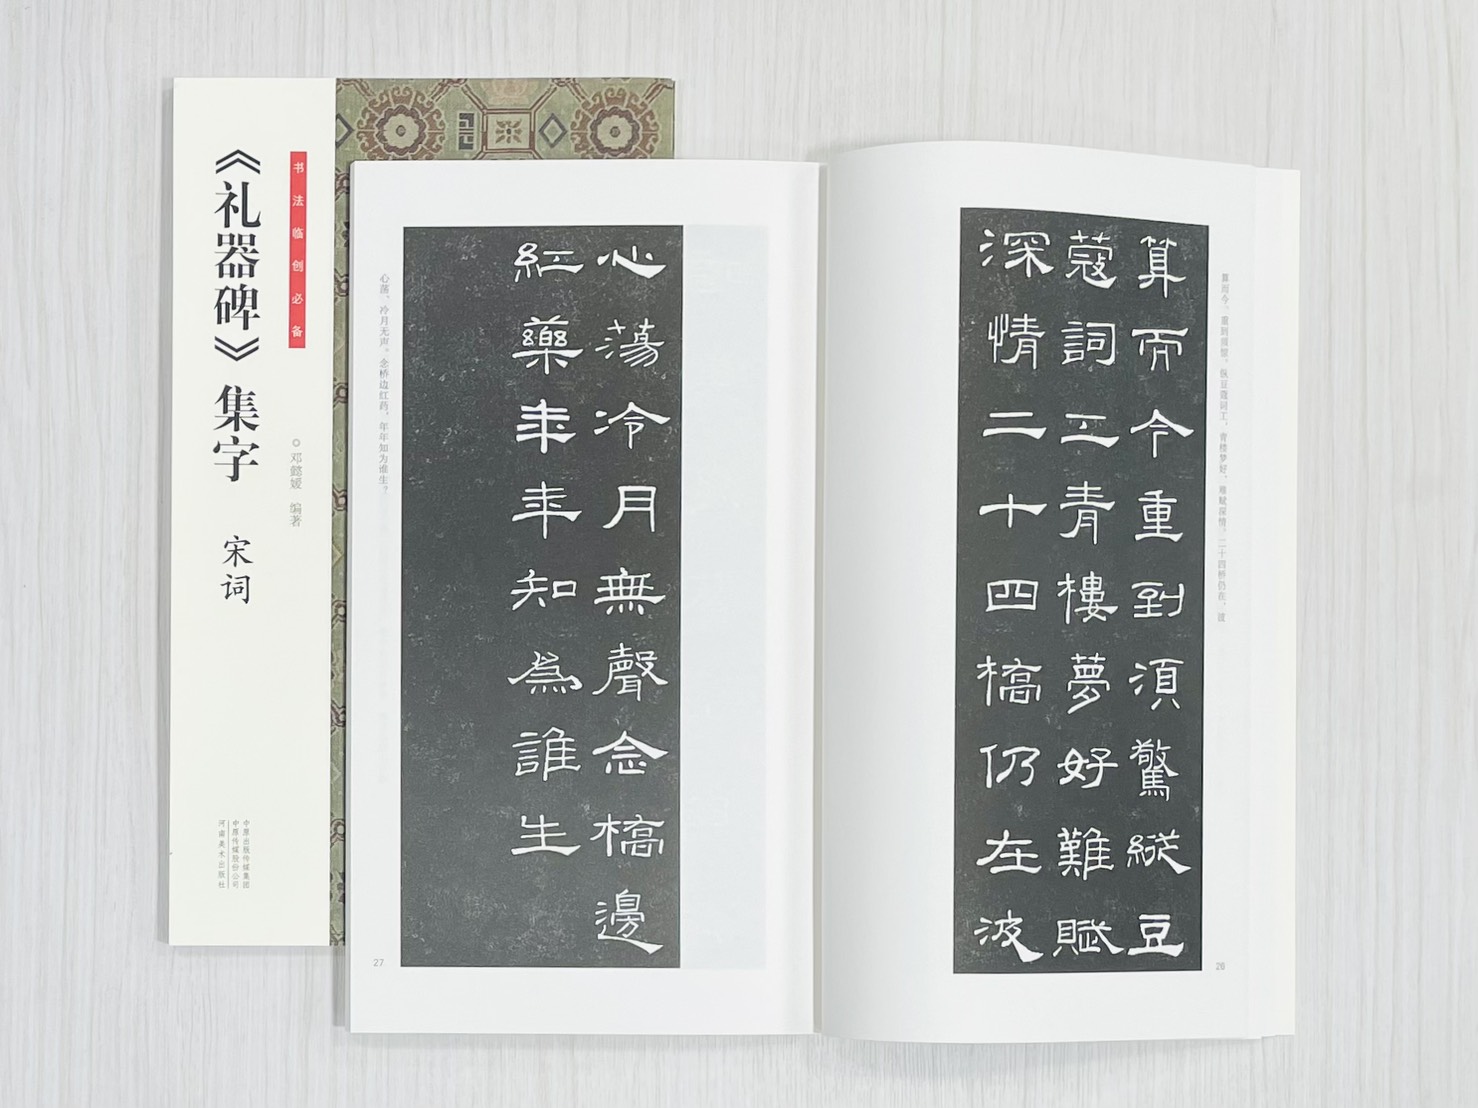 书法临创必备
《礼器碑》集字 宋词
邓懿嫒 编著
中原出版传媒集团
中原传媒股份公司
河南美术出版社
算而今、重到须惊。纵豆蔻词工，青楼梦好，难赋深情。二十四桥仍在，波
算而今重到須驚縱豆
蔻詞工青樓夢好難賦
深情二十四橋仍在波
26
心蕩冷月無聲念橋邊
紅藥年年知為誰生
心荡、冷月无声。念桥边红药，年年知为谁生？
27